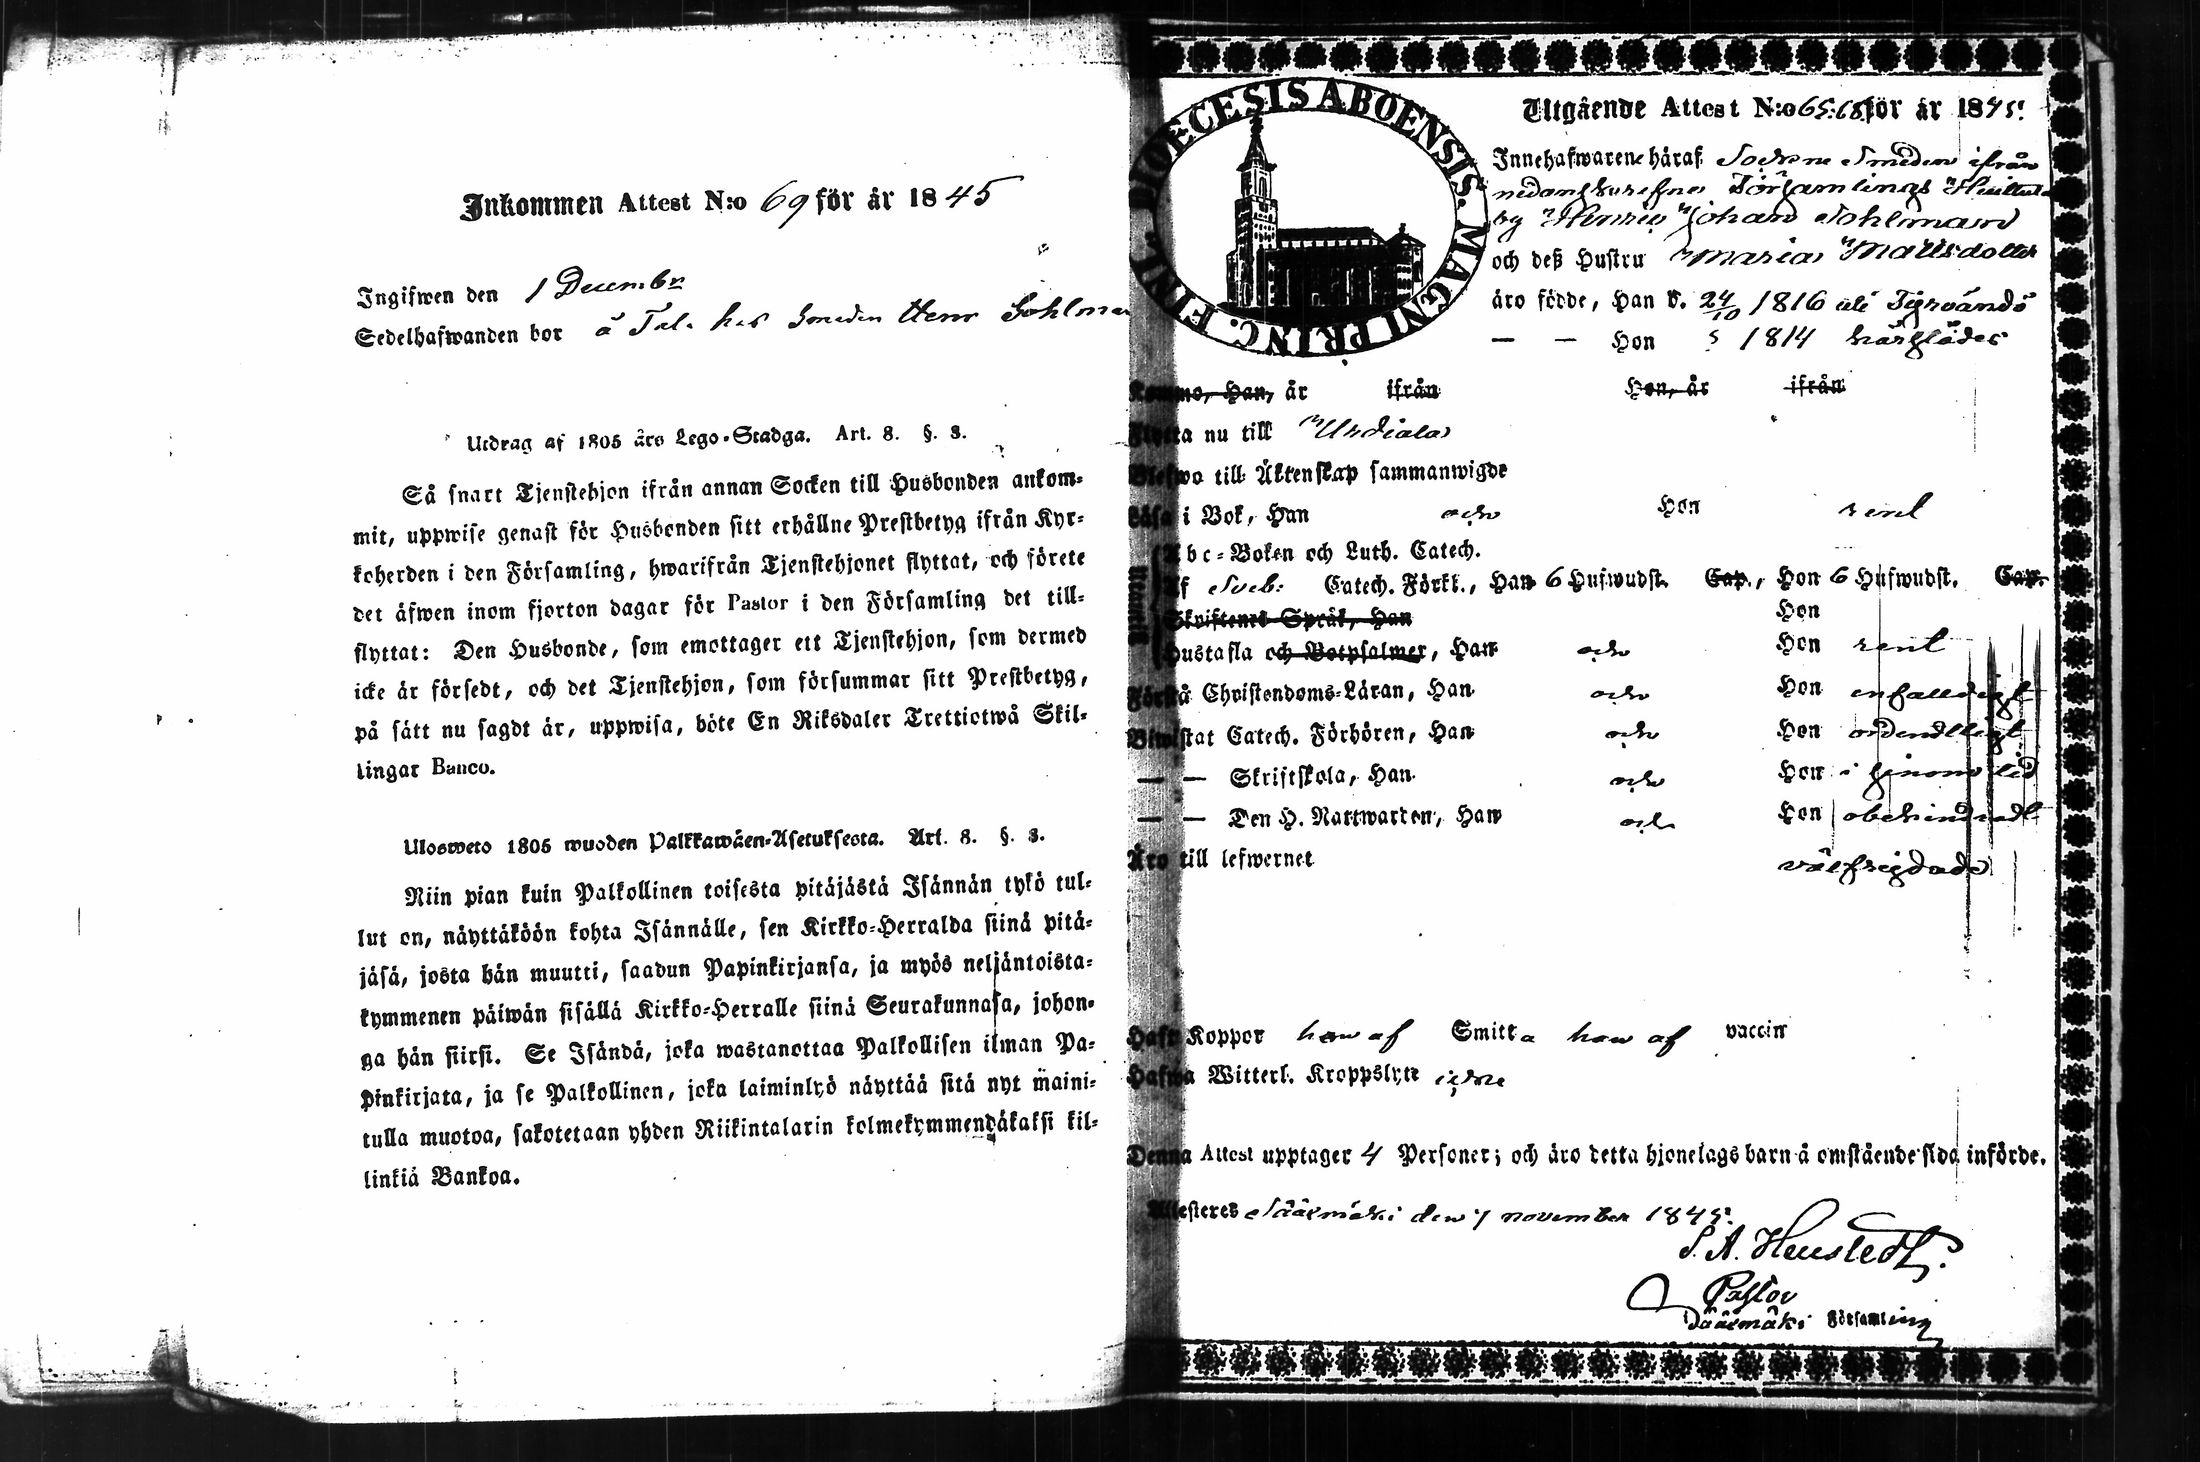 Inkommen Attest N:o 69 för år 1845
Ingifwen den 1 Decembr
Sedelhafwanden bor å Tal. hos Smeden Henr Sohlman
Utdrag af 1805 års Lego-Stadga. Art. 8. §. 3.
Så snart Tjenstehjon ifrån annan Socken till Husbonden ankom-
mit, uppwise genast för Husbonden sitt erhållne Prestbetyg ifrån Kyr-
koherden i den Församling, hwarifrån Tjenstehjonet flyttat, och förete
det äfwen inom fjorton dagar för Pastor i den Församling det till-
flyttat: Den Husbonde, som emottager ett Tjenstehjon, som dermed
icke är försedt, och det Tjenstehjon, som försummar sitt Prestbetyg,
på sätt nu sagdt är, uppwisa, böte En Riksdaler Trettiotwå Skil-
lingar Banco.
Ulosweto 1805 wuoden Palkkawäen-Asetuksesta. Art. 8. §. 3.
Niin pian kuin Palkollinen toisesta pitäjästä Isännän tykö tul-
lut on, näyttäköön kohta Isännälle, sen Kirkko-Herralda siinä pitä-
jäsä, josta hän muutti, saadun Papinkirjansa, ja myös neljäntoista-
kymmenen päiwän sisällä Kirkko-Herralle siinä Seurakunnasa, johon-
ga hän siirsi. Se Isändä, joka wastanottaa Palkollisen ilman Pa-
pinkirjata, ja se Palkollinen, joka laiminlyö näyttää sitä nyt maini-
tulla muotoa, sakotetaan yhden Riikintalarin kolmekymmendäkaksi kil-
linkiä Bankoa.
DIOECESIS ABOENSIS. MAGNI PRINC. FINL.
Utgående Attest N:o 65.68 för år 1845.
Innehafwarene häraf Sockne Smeden ifrån
nedanskrefne Församlings Huittula
by Henric Johan Sohlman
och deß Hustru Maria Mattsdotter
äro födde, Han d. 24/10 1816 uti Tyrvändö
— — Hon 1814 härstädes
Kommo, Han, år ifrån Hon, år ifrån
Flytta nu till Urdiala
Blefwo till Äktenskap sammanwigde
Läsa i Bok, Han och Hon rent
Abc-Boken och Luth. Catech.
Af Sveb: Catech. Förkl., Han 6 Hufwudst. Cap., Hon 6 Hufwudst. Cap.
Skriftenes Språk, Han Hon
Hustafla och Botpsalmer, Han och Hon rent
Förstå Christendoms-Läran, Han och Hon enfalldigt
Biwistat Catech. Förhören, Han och Hon ordendtligt
— — Skriftskola, Han och Hon i sinom tid
— — Den H. Nattwarden, Han och Hon obehindradt
Äro till lefwernet välfrejdade
Haft Koppor han af Smitta hon af vaccin
Hafwa Witterl. Kroppslyte icke
Denna Attest upptager 4 Personer; och äro detta hjonelags barn å omstående sida införde.
Attesteres Sääsmäki den 7 november 1845.
Pastor
Sääsmäki Församling